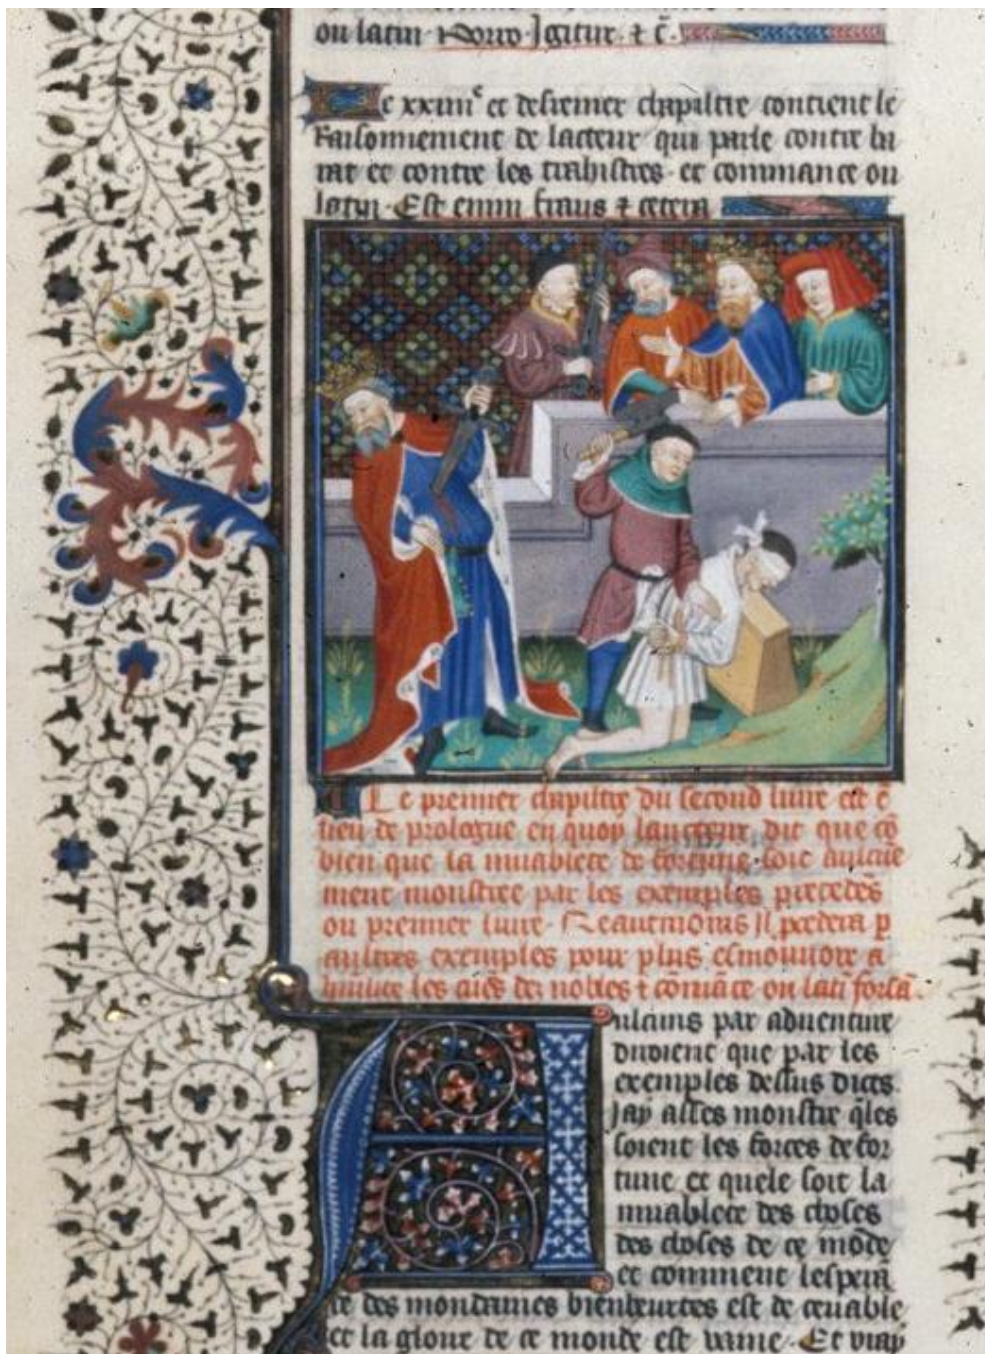 ou latin Porro Igitur ⁊ c̃.
Le xxiiiiᵉ et desrenier chapiltre contient le
Raisonnement de lacteur qui parle contre ba
rat et contre les trahistres et commance ou
latin Est enim fraus ⁊ cetera
Le premier chapiltre du second liure est ẽ
lieu de prologue en quoy lancteur dit que cõ
bien que la muablete de fortune soit aulcue
ment monstree par les exemples precedẽs
ou premier liure Neautmoins Il procedera p
aultres exemples pour plus esmouuoir a
les de nobles ⁊ cõmãce ou lati forsã
Aulcuns par aduenture
diroient que par les
exemples dessus dictes
Jay asses monstre q̃les
soient les forces de for
tune et quele soit la
muablete des choses
des choses de ce mõde
et comment lesperã
ce des mondaines bieneurtes est deceuable
et la gloire de ce monde est vaine Et vray